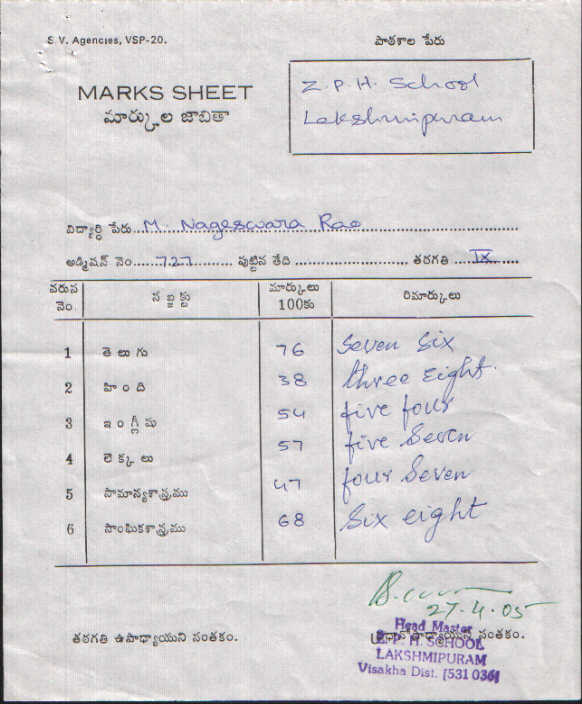 S.V. Agencies, VSP-20.
పాఠశాల పేరు
MARKS SHEET
మార్కుల జాబితా
Z.P.H. School
Lakshmipuram
విద్యార్థి పేరు M. Nageswara Rao
అడ్మిషన్ నెం. 727 పుట్టిన తేది తరగతి IX
వరుస నెం. సబ్జక్టు మార్కులు 100కు రిమార్కులు
1 తెలుగు 76 Seven Six
2 హింది 38 three Eight.
3 ఇంగ్లీషు 54 five four
4 లెక్కలు 57 five Seven
5 సామాన్యశాస్త్రము 47 four Seven
6 సాంఘికశాస్త్రము 68 Six eight
27.4.05
తరగతి ఉపాధ్యాయుని సంతకం. సంతకం.
Head Master
Z.P. H. SCHOOL
LAKSHMIPURAM
Visakha Dist. [531 036]